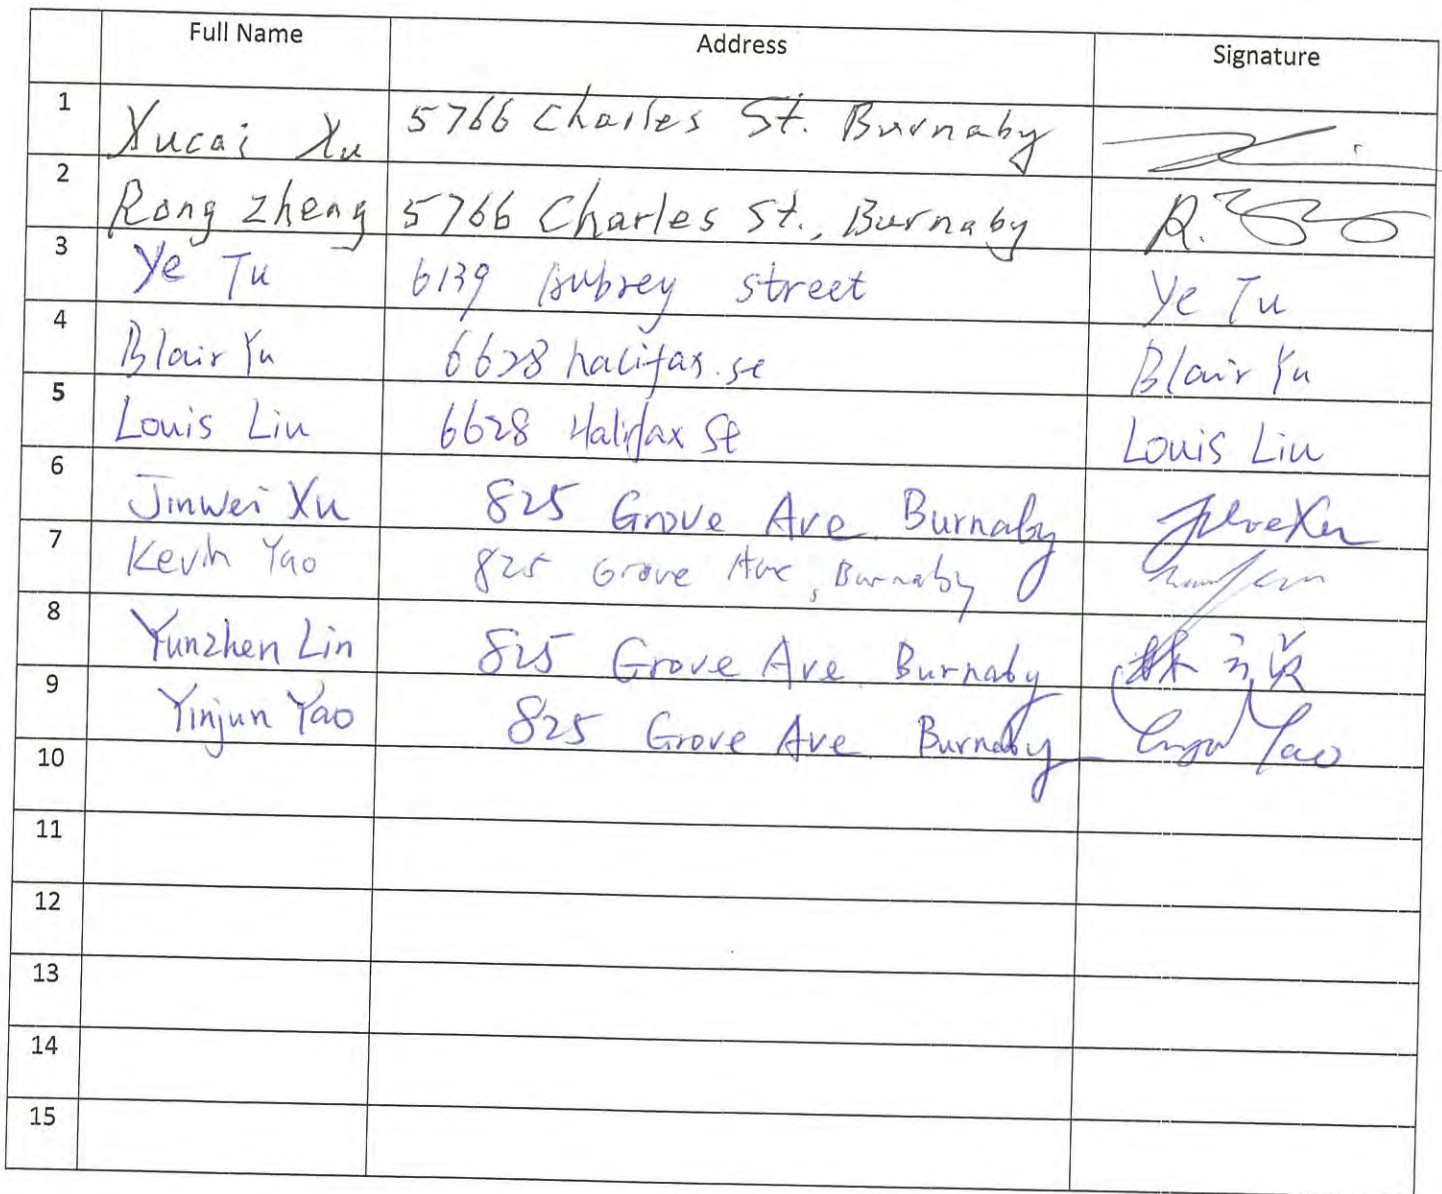 Full Name Address Signature
1 Xucai Xu 5766 Charles St. Burnaby
2 Rong Zheng 5766 Charles St., Burnaby R.
3 Ye Tu 6139 Aubrey street Ye Tu
4 Blair Yu 6628 halifax. st Blair Yu
5 Louis Liu 6628 Halifax St Louis Liu
6 Jinwei Xu 825 Grove Ave Burnaby
7 Kevin Yao 825 Grove Ave, Burnaby
8 Yunzhen Lin 825 Grove Ave Burnaby 林
9 Yinjun Yao 825 Grove Ave Burnaby Yao
10
11
12
13
14
15